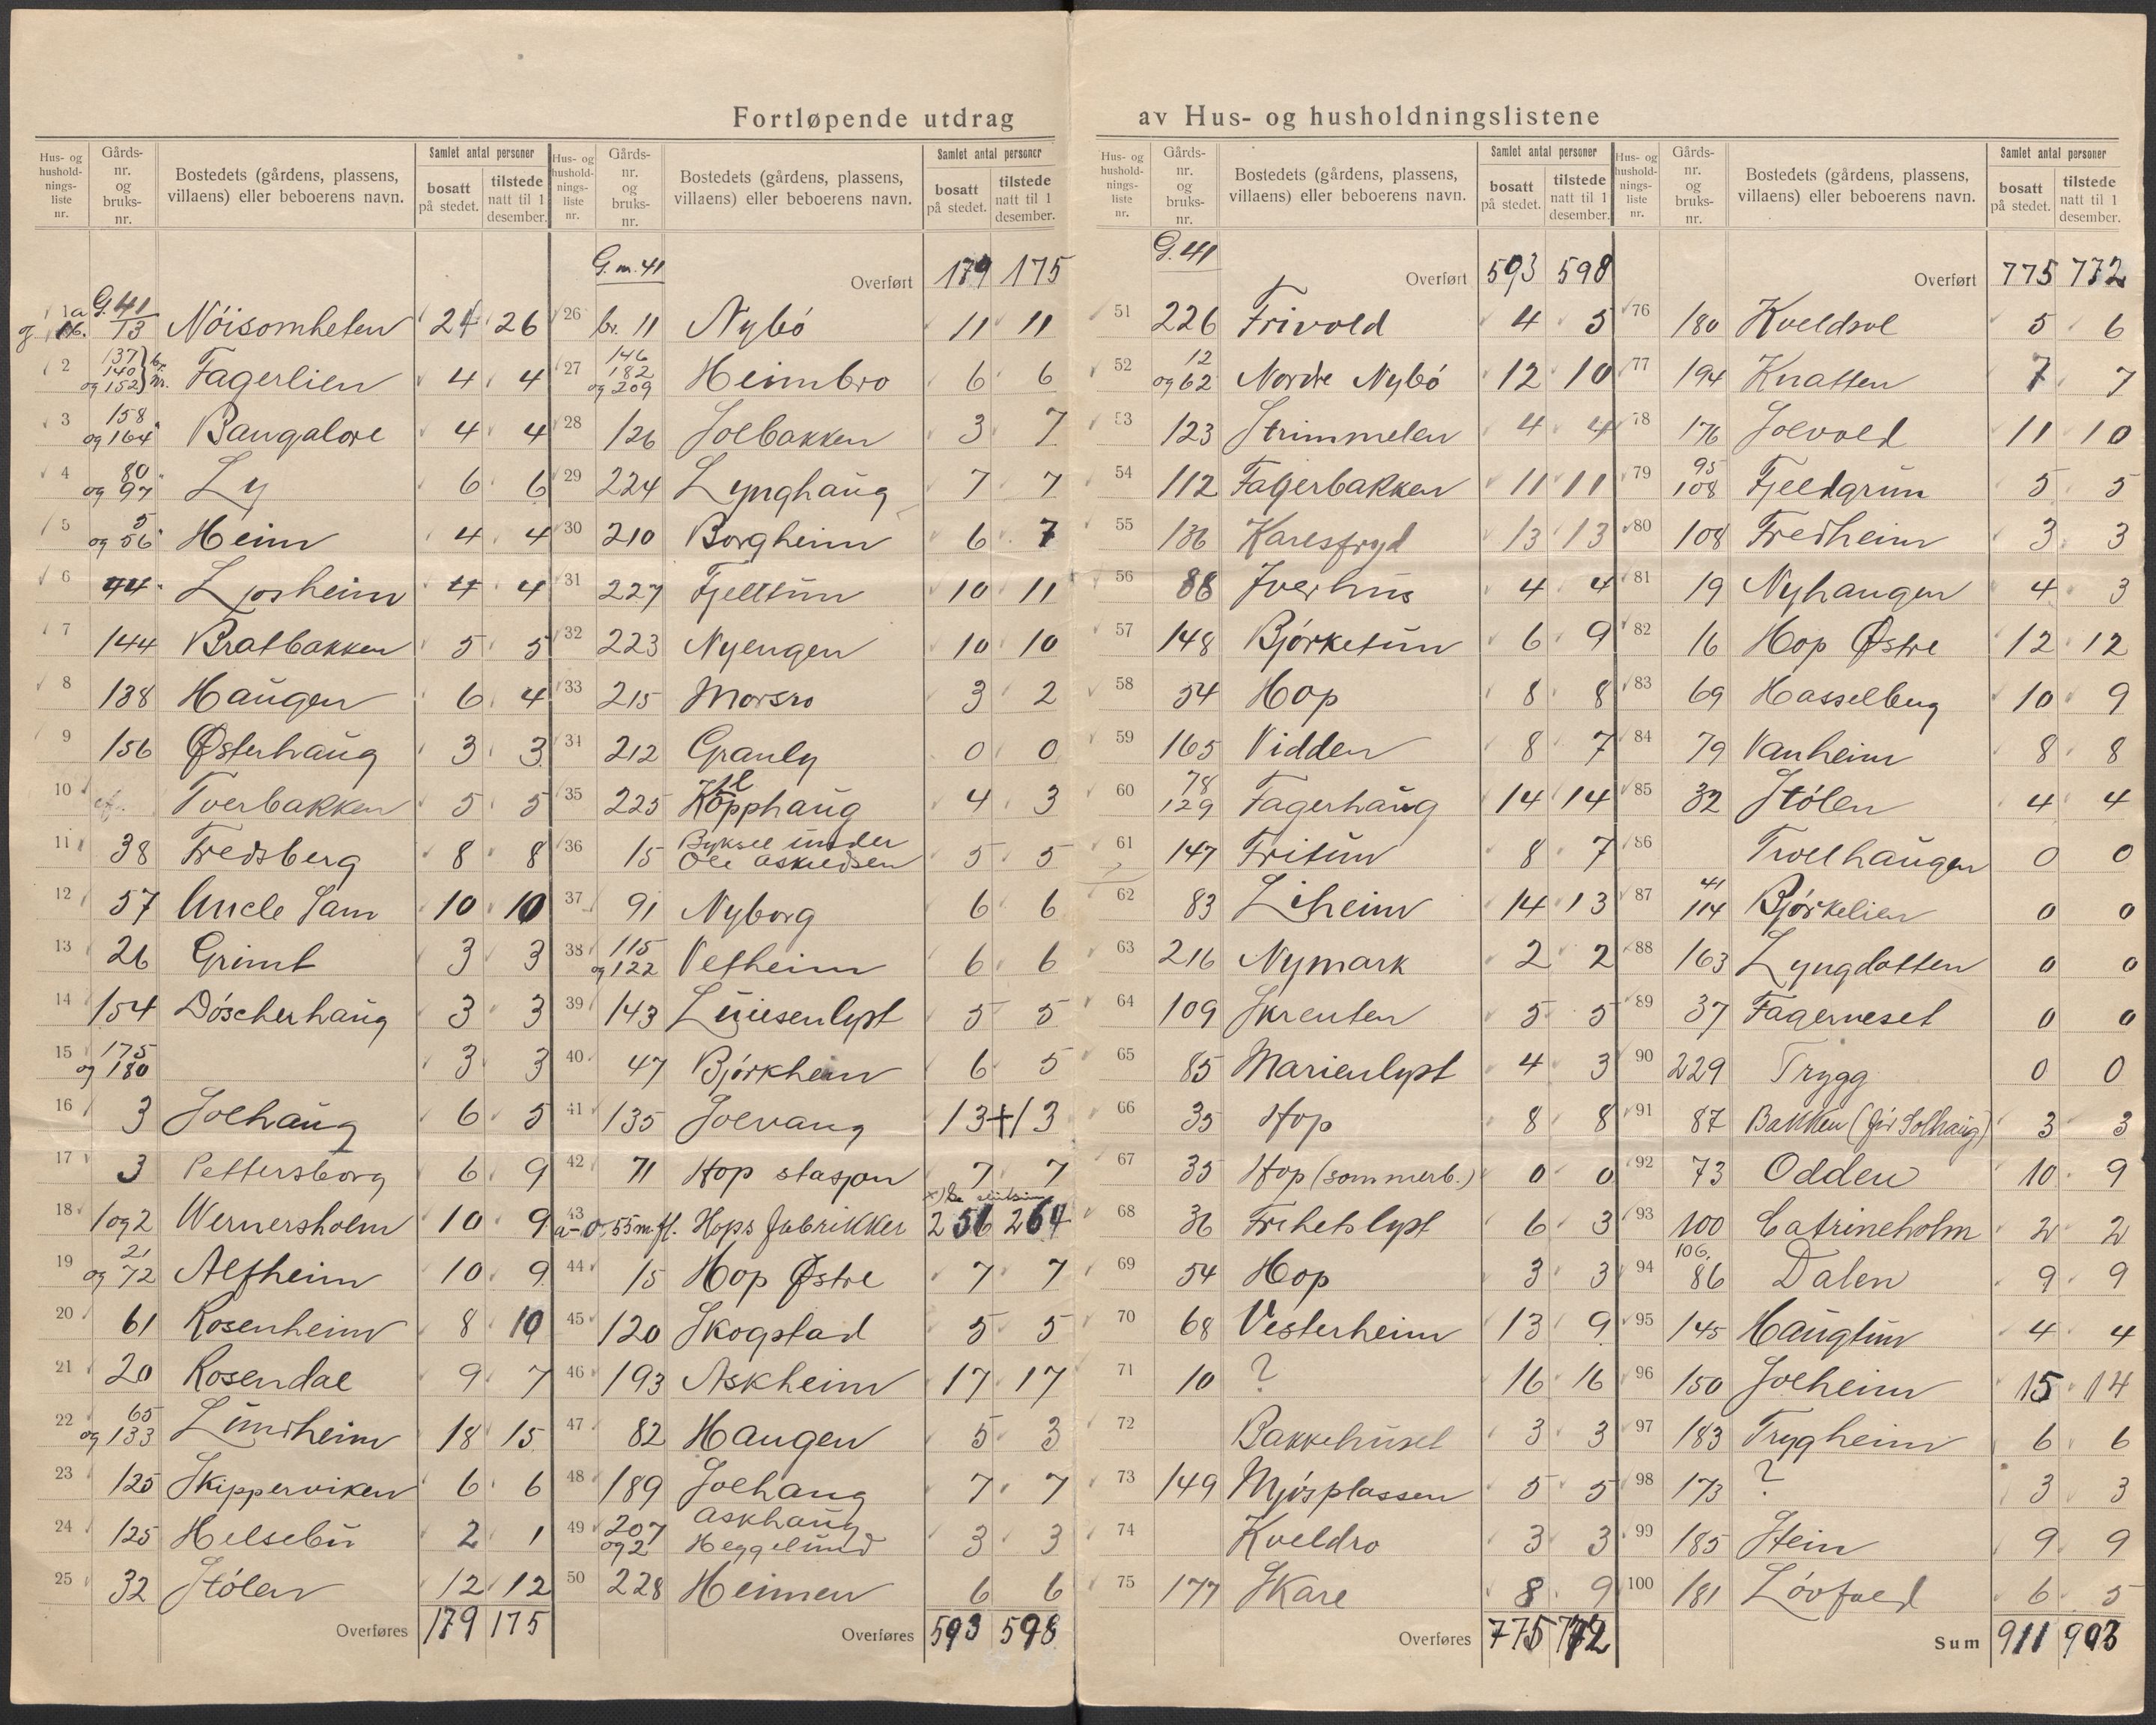 Fortløpende utdrag av Hus- og husholdningslistene
Hus- og husholdnings-liste nr. Gårds-nr. og bruks-nr. Bostedets (gårdens, plassens, villaens) eller beboerens navn. Samlet antal personer bosatt på stedet. tilstede natt til 1 desember.
G. 41
1a og 1b. 13 Nöisomheten 24 26
2 137 140 og 152 br. nr. Fagerlien 4 4
3 158 og 164 Bangalore 4 4
4 80 og 97 Ly 6 6
5 5 og 56 Heim 4 4
6 44 Ljosheim 4 4
7 144 Bratbakken 5 5
8 138 Haugen 6 4
9 156 Østerhaug 3 3
10 Tverbakken 5 5
11 38 Fredsberg 8 8
12 57 Uncle Sam 10 10
13 26 Grimt 3 3
14 154 Döscherhaug 3 3
15 175 og 180 3 3
16 3 Solhaug 6 5
17 3 Pettersborg 6 9
18 1 og 2 Wernersholm 10 9
19 21 og 72 Alfheim 10 9
20 61 Rosenheim 8 10
21 20 Rosendal 9 7
22 65 og 133 Lundheim 18 15
23 125 Skipperviken 6 6
24 125 Helsebu 2 1
25 32 Stölen 12 12
Overføres 179 175
Hus- og husholdnings-liste nr. Gårds-nr. og bruks-nr. Bostedets (gårdens, plassens, villaens) eller beboerens navn. Samlet antal personer bosatt på stedet. tilstede natt til 1 desember.
G. nr. 41 Overført 179 175
26 br. 11 Nybö 11 11
27 146 182 og 209 Heimbro 6 6
28 126 Solbakken 3 7
29 224 Lynghaug 7 7
30 210 Borgheim 6 7
31 227 Fjelltun 10 11
32 223 Nyengen 10 10
33 215 Morsro 3 2
34 212 Granly 0 0
35 225 Kopphaug 4 3
36 15 Byksel under Ole Askildsen 5 5
37 91 Nyborg 6 6
38 115 og 122 Vetheim 6 6
39 143 Luisenlyst 5 5
40 47 Björkheim 6 5
41 135 Solvang 13 + 13
42 71 Hop stasjon 7 7
43 a-o, 55 m. fl. Hops fabrikker 256 264
44 15 Hop Østre 7 7
45 120 Skogstad 5 5
46 193 Askheim 17 17
47 82 Haugen 5 3
48 189 Solhaug 7 7
49 207 og 2 Askhaug Heggelund 3 3
50 228 Heimen 6 6
Overføres 593 598
Hus- og husholdnings-liste nr. Gårds-nr. og bruks-nr. Bostedets (gårdens, plassens, villaens) eller beboerens navn. Samlet antal personer bosatt på stedet. tilstede natt til 1 desember.
G. 41 Overført 593 598
51 226 Frivold 4 5
52 12 og 62 Nordre Nybö 12 10
53 123 Strimmelen 4 4
54 112 Fagerbakken 11 11
55 136 Karesfryd 13 13
56 88 Iverhus 4 4
57 148 Björketun 6 9
58 54 Hop 8 8
59 165 Vidden 8 7
60 78 129 Fagerhaug 14 14
61 147 Fritun 8 7
62 83 Liheim 14 13
63 216 Nymark 2 2
64 109 Skrenten 5 5
65 85 Marienlyst 4 3
66 35 Hop 8 8
67 35 Hop (sommerb.) 0 0
68 36 Frihetslyst 6 3
69 54 Hop 3 3
70 68 Vesterheim 13 9
71 10 ? 16 16
72 Bakkehuset 3 3
73 149 Mjösplassen 5 5
74 Kveldro 3 3
75 177 Skare 8 9
Overføres 775 772
Hus- og husholdnings-liste nr. Gårds-nr. og bruks-nr. Bostedets (gårdens, plassens, villaens) eller beboerens navn. Samlet antal personer bosatt på stedet. tilstede natt til 1 desember.
Overført 775 772
76 180 Kveldsol 5 6
77 194 Knatten 7 7
78 176 Solvold 11 10
79 95 108 Fjeldgrun 5 5
80 108 Fredheim 3 3
81 19 Nyhaugen 4 3
82 16 Hop Østre 12 12
83 69 Hasselberg 10 9
84 79 Vanheim 8 8
85 32 Stölen 4 4
86 Trollhaugen 0 0
87 41 114 Björkelien 0 0
88 163 Lyngdotten 0 0
89 37 Fagerneset 0 0
90 229 Trygg 0 0
91 87 Bakken (för Solhaug) 3 3
92 73 Odden 10 9
93 100 Catrineholm 2 2
94 106, 86 Dalen 9 9
95 145 Haugtun 4 4
96 150 Solheim 15 14
97 183 Trygheim 6 6
98 173 ? 3 3
99 185 Stein 9 9
100 181 Lövfald 6 5
Sum 911 903